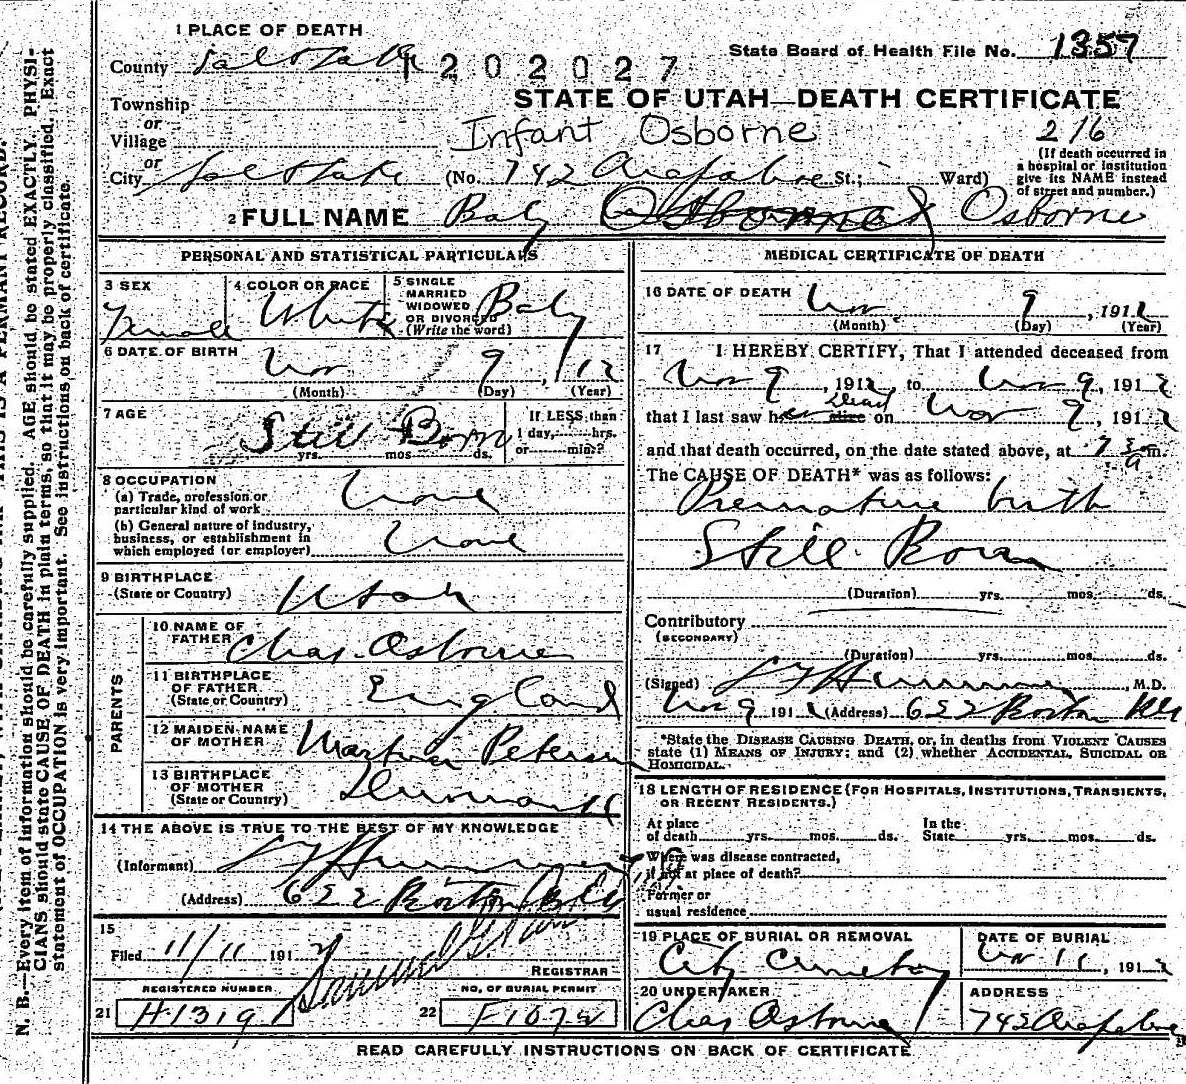 N. B.—Every item of information should be carefully supplied. AGE should be stated EXACTLY. PHYSI-
CIANS should state CAUSE OF DEATH in plain terms, so that it may be properly classified. Exact
statement of OCCUPATION is very important. See instructions on back of certificate.
1 PLACE OF DEATH
County Salt Lake
1202027
State Board of Health File No. 1357
STATE OF UTAH—DEATH CERTIFICATE
Township
or
Village
or
Infant Osborne
216
City Salt Lake (No. 742 Arapahoe St.; Ward)
(If death occurred in
a hospital or institution
give its NAME instead
of street and number.)
2 FULL NAME Baby Osborne Osborne
PERSONAL AND STATISTICAL PARTICULARS
3 SEX
Female
4 COLOR OR RACE
White
5 SINGLE
MARRIED
WIDOWED
OR DIVORCED
(Write the word)
Baby
6 DATE OF BIRTH
Nov 9, 1912
(Month) (Day) (Year)
7 AGE
Still Born
yrs. mos ds.
If LESS than
1 day, hrs.
or min.?
8 OCCUPATION
(a) Trade, profession or
particular kind of work None
(b) General nature of industry,
business, or establishment in
which employed (or employer) None
9 BIRTHPLACE
(State or Country) Utah
PARENTS
10 NAME OF
FATHER Chas. Osborne
11 BIRTHPLACE
OF FATHER
(State or Country) England
12 MAIDEN NAME
OF MOTHER Petersen
13 BIRTHPLACE
OF MOTHER
(State or Country) Denmark
14 THE ABOVE IS TRUE TO THE BEST OF MY KNOWLEDGE
(Informant)
(Address) 622 Boston Bldg
15
Filed 11/11 1912
REGISTRAR
REGISTERED NUMBER
21 H1319
NO. OF BURIAL PERMIT
22 F1072
MEDICAL CERTIFICATE OF DEATH
16 DATE OF DEATH Nov 9, 1912
(Month) (Day) (Year)
17 I HEREBY CERTIFY, That I attended deceased from
Nov 9, 1912, to Nov 9, 1912
that I last saw her alive Dead on Nov 9, 1912
and that death occurred, on the date stated above, at 7 30 a m.
The CAUSE OF DEATH* was as follows:
Premature birth
Still Born
(Duration) yrs. mos. ds.
Contributory
(SECONDARY)
(Duration) yrs. mos. ds.
(Signed) , M.D.
Nov 9 1912 (Address) 622 Boston Bldg
*State the DISEASE CAUSING DEATH, or, in deaths from VIOLENT CAUSES
state (1) MEANS OF INJURY; and (2) whether ACCIDENTAL, SUICIDAL OR
HOMICIDAL.
18 LENGTH OF RESIDENCE (FOR HOSPITALS, INSTITUTIONS, TRANSIENTS,
OR RECENT RESIDENTS.)
At place
of death yrs. mos. ds.
In the
State yrs. mos. ds.
Where was disease contracted,
if not at place of death?
Former or
usual residence
19 PLACE OF BURIAL OR REMOVAL
City Cemetery
DATE OF BURIAL
Nov 11, 1912
20 UNDERTAKER
Chas Osborne
ADDRESS
742 Arapahoe
READ CAREFULLY INSTRUCTIONS ON BACK OF CERTIFICATE